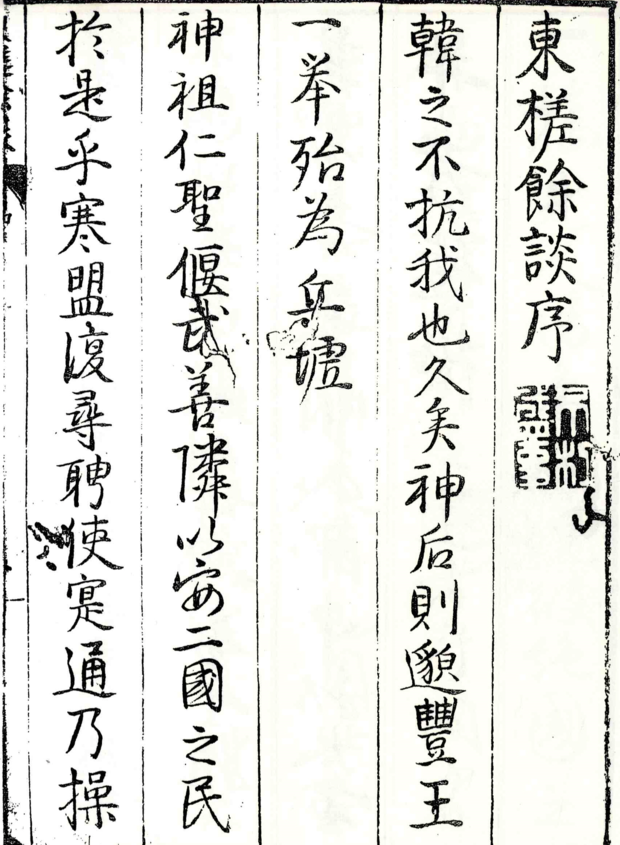 東槎餘談序
韓之不抗我也久矣神后則邈豐王
一举殆為兵墟
神祖仁聖偃武善隣以安二國之民
於是乎寒盟復尋聘使寔通乃操